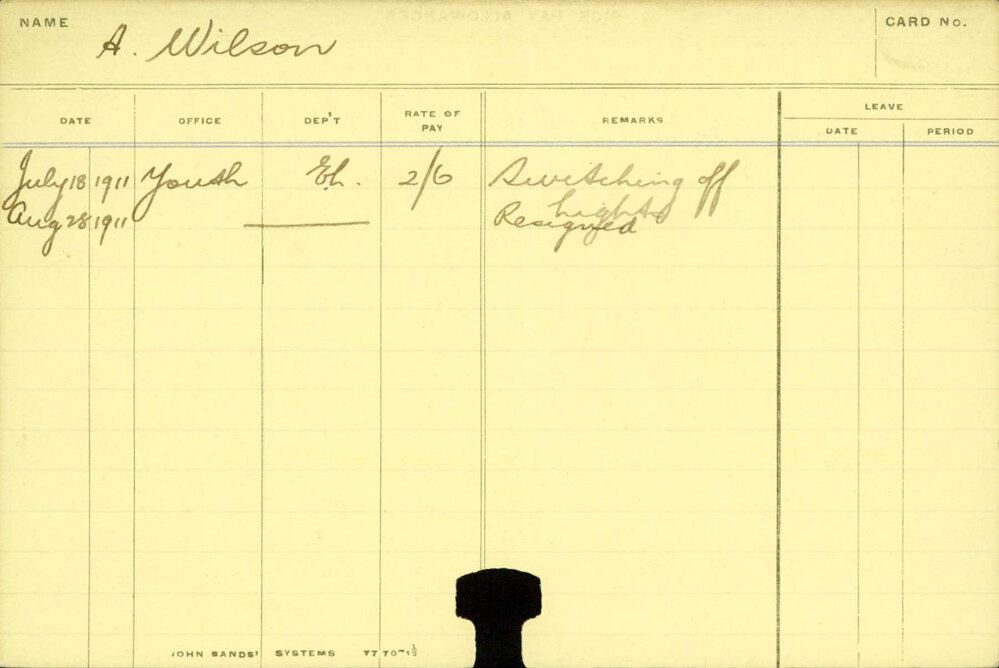 NAME A. Wilson CARD No.
DATE OFFICE DEP'T RATE OF PAY REMARKS LEAVE
DATE PERIOD
July 18 1911 Youth El. 2/6 Switching off
Lights
Aug 28 1911 Resigned
JOHN SANDS' SYSTEMS 7770-1½